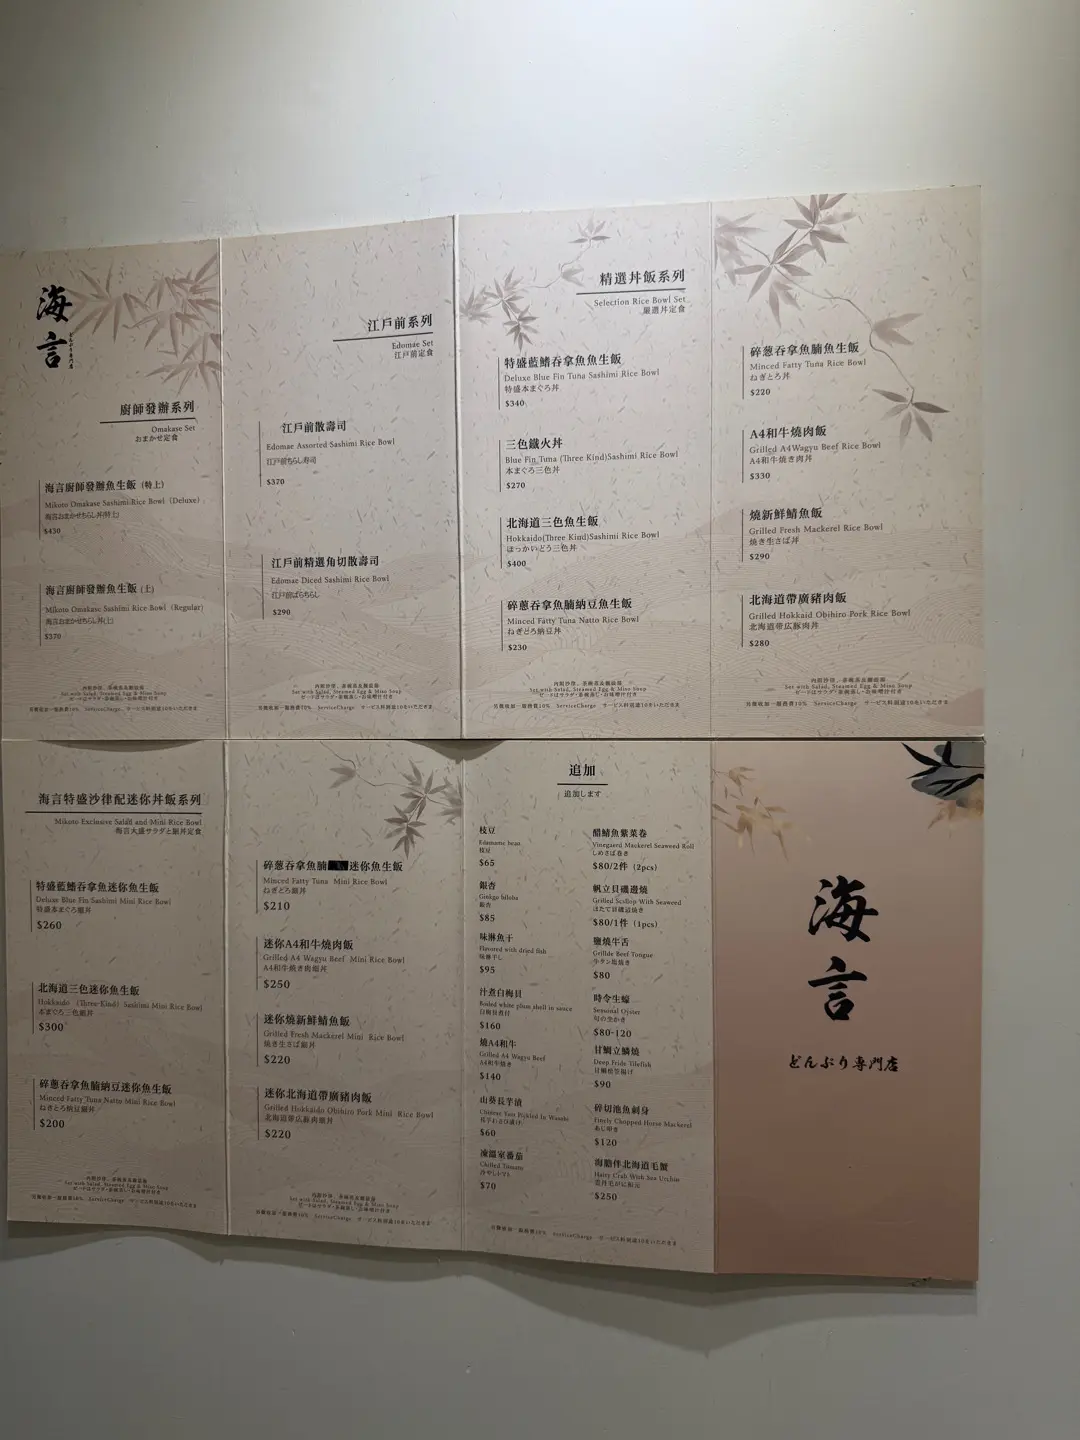 海言
どんぶり專門店
廚師發辦系列
Omakase Set
おまかせ定食
海言廚師發辦魚生飯（特上）
Mikoto Omakase Sashimi Rice Bowl（Deluxe）
海言おまかせちらし丼(特上)
$430
海言廚師發辦魚生飯（上）
Mikoto Omakase Sashimi Rice Bowl（Regular）
海言おまかせちらし丼(上)
$370
Set with Salad, Steamed Egg & Miso Soup
另雖收加一服務費10% ServiceCharge サービス料別途10%をいただきま
江戶前系列
Edomae Set
江戸前定食
江戶前散壽司
Edomae Assorted Sashimi Rice Bowl
江戸前ちらし寿司
$370
江戶前精選角切散壽司
Edomae Diced Sashimi Rice Bowl
江戸前ばらちらし
$290
Set with Salad, Steamed Egg & Miso Soup
ServiceCharge
精選丼飯系列
Selection Rice Bowl Set
厳選丼定食
特盛藍鰭吞拿魚魚生飯
Deluxe Blue Fin Tuna Sashimi Rice Bowl
特盛本まぐろ丼
$340
三色鐵火丼
Blue Fin Tuna (Three Kind)Sashimi Rice Bowl
本まぐろ三色丼
$270
北海道三色魚生飯
Hokkaido(Three Kind)Sashimi Rice Bowl
ほっかいどう三色丼
$400
碎蔥吞拿魚腩納豆魚生飯
Minced Fatty Tuna Natto Rice Bowl
ねぎとろ納豆丼
$230
Set with Salad, Steamed Egg & Miso Soup
ServiceCharge
碎蔥吞拿魚腩魚生飯
Minced Fatty Tuna Rice Bowl
ねぎとろ丼
$220
A4和牛燒肉飯
Grilled A4Wagyu Beef Rice Bowl
A4和牛焼き肉丼
$330
燒新鮮鯖魚飯
Grilled Fresh Mackerel Rice Bowl
焼き生さば丼
$290
北海道帶廣豬肉飯
Grilled Hokkaid Obihiro Pork Rice Bowl
北海道帯広豚肉丼
$280
Set with Salad, Steamed Egg & Miso Soup
ServiceCharge
海言特盛沙律配迷你丼飯系列
Mikoto Exclusive Salad and Mini Rice Bowl
海言大盛サラダと細丼定食
特盛藍鰭吞拿魚迷你魚生飯
Deluxe Blue Fin Sashimi Mini Rice Bowl
特盛本まぐろ細丼
$260
北海道三色迷你魚生飯
Hokkaido （Three-Kind）Sashimi Mini Rice Bowl
本まぐろ三色細丼
$300
碎蔥吞拿魚腩納豆迷你魚生飯
Minced Fatty Tuna Natto Mini Rice Bowl
ねぎとろ納豆細丼
$200
Set with Salad, Steamed Egg & Miso Soup
ServiceCharge
碎蔥吞拿魚腩迷你魚生飯
Minced Fatty Tuna Mini Rice Bowl
ねぎとろ細丼
$210
迷你A4和牛燒肉飯
Grilled A4 Wagyu Beef Mini Rice Bowl
A4和牛焼き肉細丼
$250
迷你燒新鮮鯖魚飯
Grilled Fresh Mackerel Mini Rice Bowl
焼き生さば細丼
$220
迷你北海道帶廣豬肉飯
Grilled Hokkaido Obihiro Pork Mini Rice Bowl
北海道帯広豚肉細丼
$220
Set with Salad, Steamed Egg & Miso Soup
ServiceCharge
追加
追加します
枝豆
Edamame bean
枝豆
$65
銀杏
Ginkgo biloba
銀杏
$85
味淋魚干
Flavored with dried fish
味醂干し
$95
汁煮白梅貝
Boiled white plum shell in sauce
白梅貝煮付
$160
燒A4和牛
Grilled A4 Wagyu Beef
A4和牛焼き
$140
山葵長芋漬
Chinese Yam Pickled In Wasabi
長芋わさび漬け
$60
凍溫室番茄
Chilled Tomato
冷やしトマト
$70
醋鯖魚紫菜卷
Vinegared Mackerel Seaweed Roll
しめさば巻き
$80/2件（2pcs）
帆立貝磯邊燒
Grilled Scallop With Seaweed
ほたて貝磯辺焼き
$80/1件（1pcs）
鹽燒牛舌
Grillde Beef Tongue
牛タン塩焼き
$80
時令生蠔
Seasonal Oyster
旬の生かき
$80-120
甘鯛立鱗燒
Deep Fride Tilefish
$90
碎切池魚刺身
Finely Chopped Horse Mackerel
あじ叩き
$120
海膽伴北海道毛蟹
Hairy Crab With Sea Urchin
$250
ServiceCharge
海言
どんぶり専門店